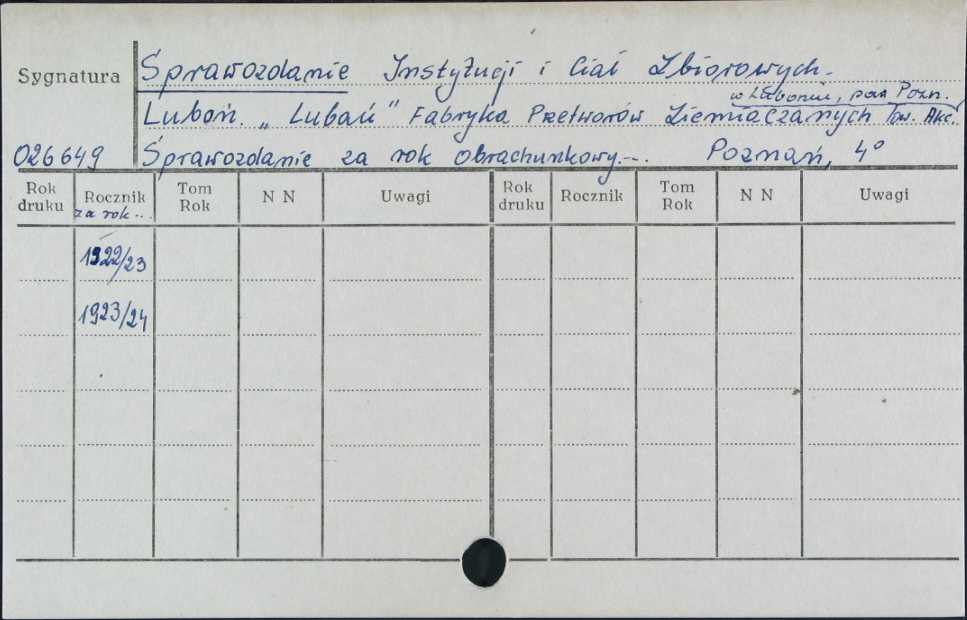 Sygnatura
Sprawozdanie Instytucji i Ciał Zbiorowych.
w Luboniu, pod Pozn.
Luboń. „Lubań" Fabryka Przetworów Ziemiaczanych Tow. Akc.
026649 Sprawozdanie za rok obrachunkowy... Poznań, 4°
Rok druku Rocznik Tom Rok N N Uwagi Rok druku Rocznik Tom Rok N N Uwagi
za rok...
1922/23
1923/24